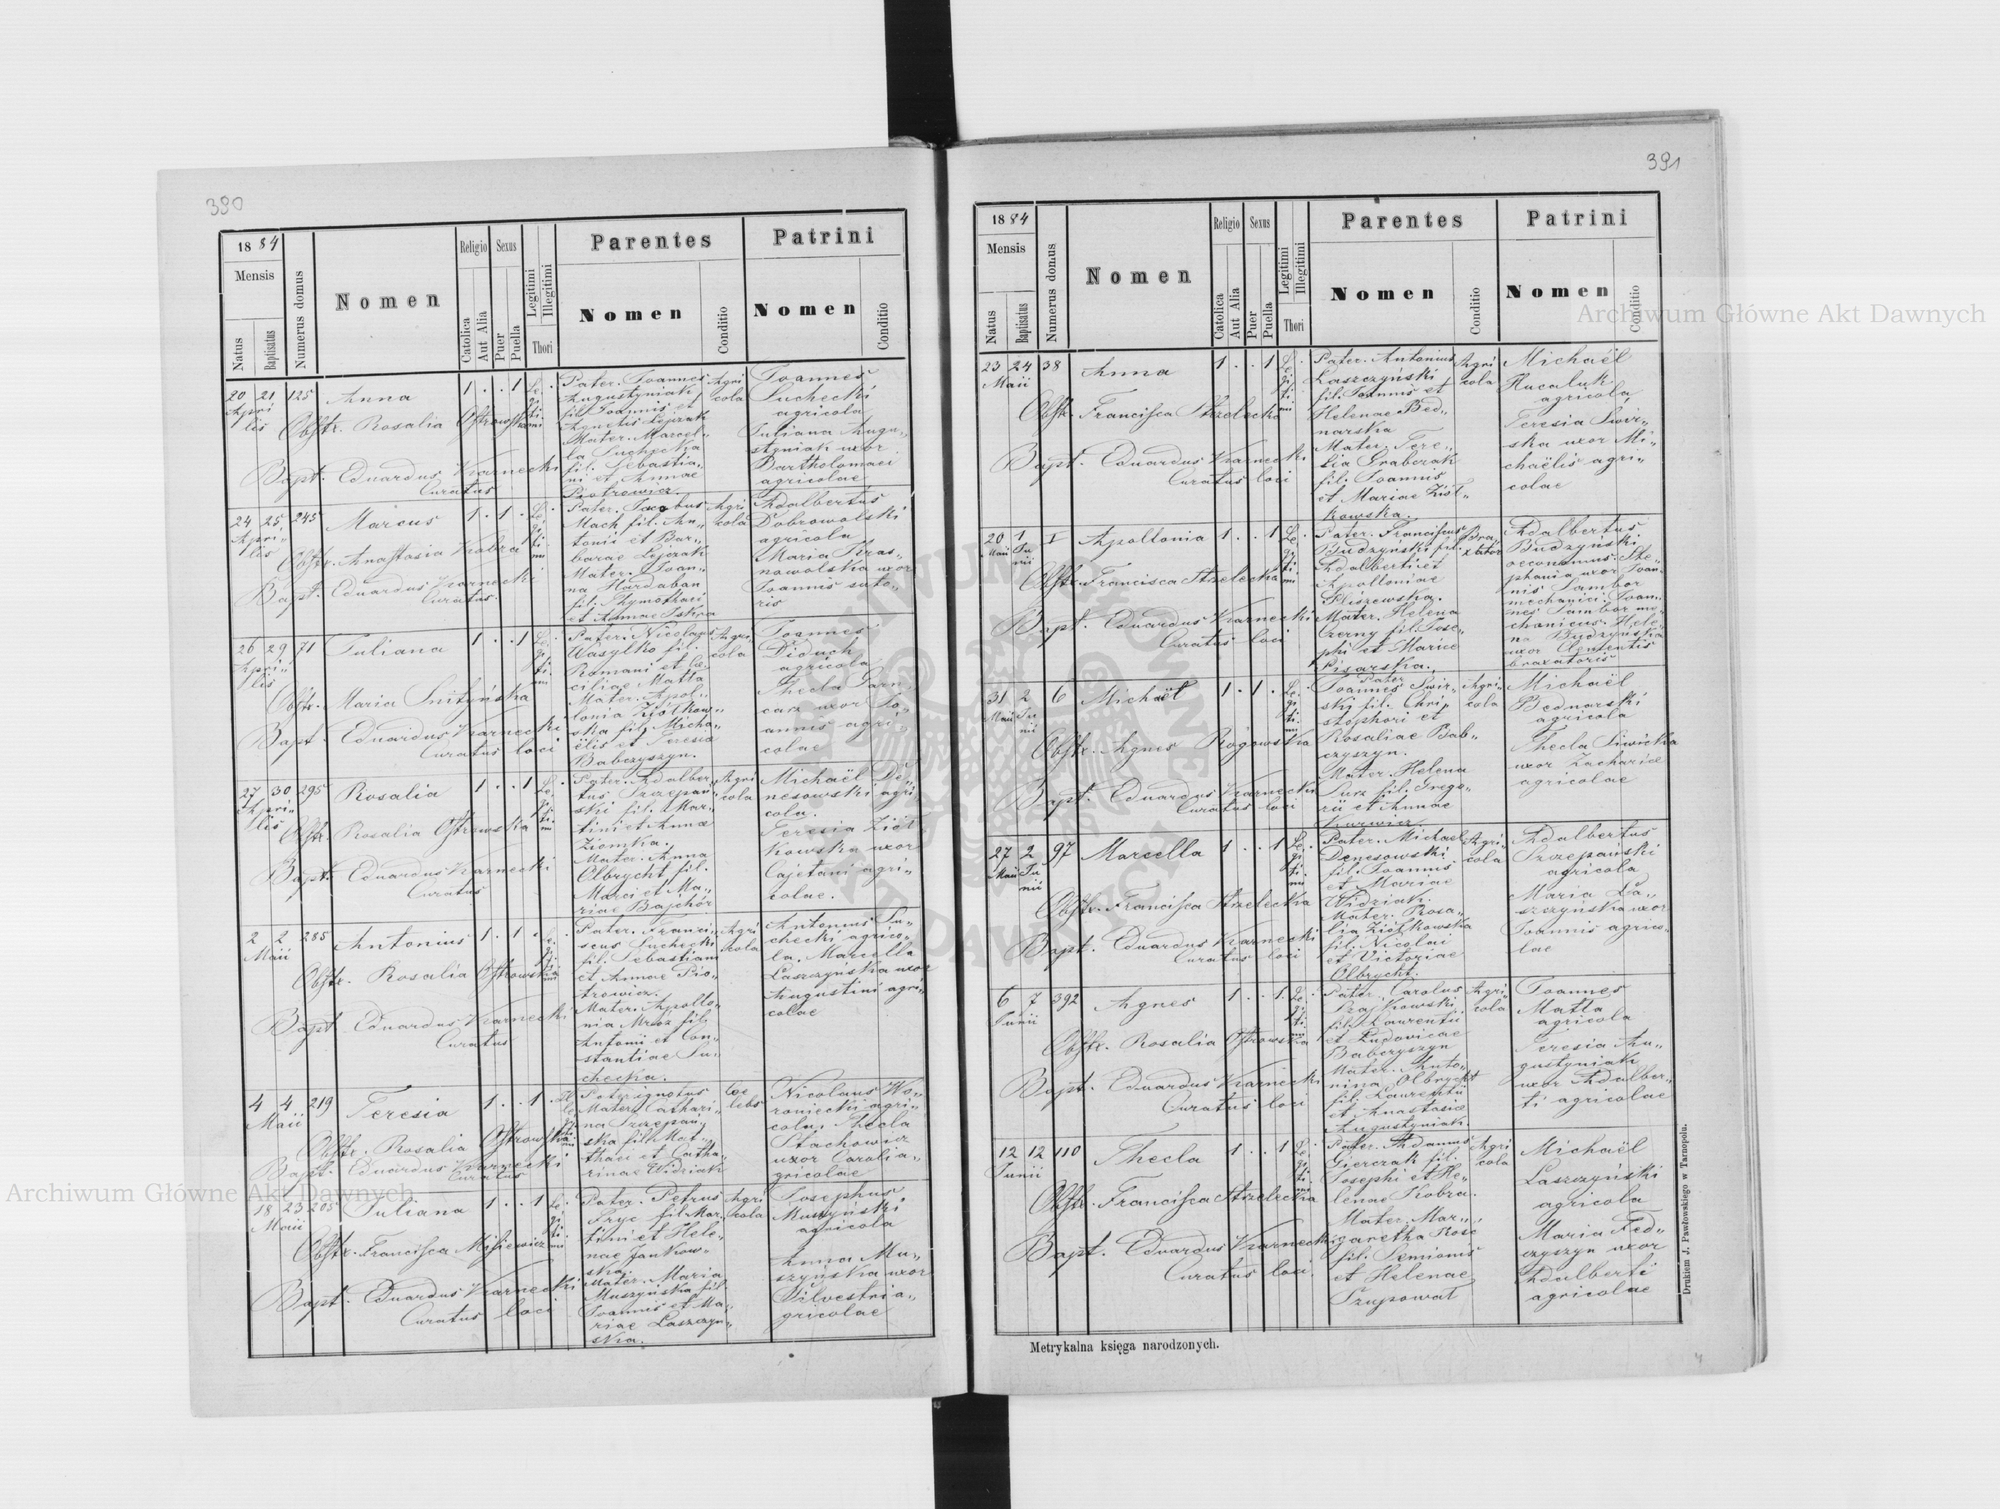 390
1884
Mensis
Natus
Baptisatus
Numerus domus
Nomen
Religio
Catolica
Aut Alia
Sexus
Puer
Puella
Legitimi
Illegitimi
Thori
Parentes
Nomen
Conditio
Patrini
Nomen
Conditio
20 21 125 Anna 1 . . 1
Apri
lis
Obstr. Rosalia Ostrowska
Bapt. Eduardus Karnecki
Curatus
Legitimi
Pater. Joannes
Augustyniak
fil. Joannis et
Agnetis Lejczak
Mater. Marcel„
la Suchecka
fil. Sebastia„
ni et Annae
Piotrowicz.
Agri
cola
Joannes
Suchecki
agricola
Juliana Augu„
styniak uxor
Bartholomaei
agricolae
24 25 245 Marcus 1 . 1 .
Apri„
lis
Obstr. Anastasia Kobra
Bapt. Eduardus Karnecki
Curatus.
Pater. Jacobus
Mach fil. An„
tonii et Bar„
barae Lejczak
Mater. Joan„
na Hardaban
fil. Thymothaei
et Annae
Agri
cola
Adalbertus
Dobrowolski
agricola
Maria Kras„
nowolska uxor
Joannis suto„
ris
26 29 71 Juliana 1 . . 1
Apri„
lis
Obstr. Maria
Bapt. Eduardus Karnecki
Curatus loci
Pater. Nicolaus
Wasylko fil.
Romani et Cae
ciliae Matla
Mater. Apol„
lonia Ziółkow„
ska fil. Micha„
ëlis et Teresia
Babczyszyn.
Agri
cola
Joannes
Diduch
agricola
Thecla
uxor Jo„
annis agri„
colae
27 30 295 Rosalia 1 . . 1
Apri„
lis
Obstr. Rosalia Ostrowska
Bapt. Eduardus Karnecki
Curatus
Pater. Adalber„
tus Szczepań„
ski fil. Mar„
tini et Annae
Ziomka.
Mater. Anna
Olbrycht fil.
Marci et Ma„
riae Bajchor
Agri
cola
Michaël De„
nesowski agri„
cola.
Teresia Ziół„
kowska uxor
Cajetani agri„
colae.
2 2 285 Antonius 1 . 1 .
Maii
Obstr. Rosalia Ostrowska
Bapt. Eduardus Karnecki
Curatus
Pater. Franci„
scus Suchecki
fil. Sebastiani
et Annae Pio„
trowicz.
Mater. Apollo„
nia Mroz fil.
Antonii et Con„
stantiae Su„
checka.
Agri
cola
Antonius Su„
checki agrico„
la, Marcella
Laszczyńska uxor
Augustini agri„
colae
4 4 219 Teresia 1 . . 1
Maii
Obstr. Rosalia Ostrowska
Bapt. Eduardus Karnecki
Curatus
Pater ignotus
Mater Cathari„
na Szczepań„
ska fil. Mat„
thaei et Catha„
rinae Widziak
Coe
lebs
Nicolaus Wo„
roniecki agri„
cola, Thecla
Stachowicz
uxor Caroli a„
gricolae
18 23 205 Juliana 1 . . 1
Maii
Obstr. Francisca Misiewicz
Bapt. Eduardus Karnecki
Curatus loci
Pater. Petrus
Fryc fil. Mar„
tini et Hele„
nae Jankow„
ska.
Mater. Maria
Muszyńska fil.
Joannis et Ma„
riae Laszczyń„
ska.
Agri
cola
Josephus
Muszyński
agricola
Anna Mu„
szyńska uxor
Silvestri a„
gricolae
391
1884
Mensis
Natus
Baptisatus
Numerus domus
Nomen
Religio
Catolica
Aut Alia
Sexus
Puer
Puella
Legitimi
Illegitimi
Thori
Parentes
Nomen
Conditio
Patrini
Nomen
Conditio
23 24 38 Anna 1 . . 1
Maii
Obstr. Francisca Strzelecka
Bapt. Eduardus Karnecki
Curatus loci
Pater. Antonius
Laszczyński
fil. Joannis et
Helenae Bed„
narska
Mater. Tere„
sia Grabczak
fil. Joannis
et Mariae Ziół„
kowska.
Agri
cola
Michaël
Hucaluk
agricola
Teresia Swir„
ska uxor Mi„
chaëlis agri„
colae
20 1 I Apollonia 1 . . 1
Maii Ju
nii
Obstr. Francisca Strzelecka
Bapt. Eduardus Karnecki
Curatus loci
Pater. Franciscus
Budzyński fil.
Adalberti et
Apolloniae
Pliszewska.
Mater. Helena
Czerny fil. Jose„
phi et Mariae
Pisarska.
Bra„
xator
Adalbertus
Budzyński
oeconomus. Ste„
phania uxor Joan„
nis Sambor
mechanici. Joan„
nes Sambor me„
chanicus. Hele„
na Budzyńska
uxor Clementis
braxatoris
31 2 6 Michaël 1 . 1 .
Maii Ju
nii
Obstr. Agnes Rogowska
Bapt. Eduardus Karnecki
Curatus loci
Pater
Joannes Swir„
ski fil. Chri„
stophori et
Rosaliae Bab„
czyszyn.
Mater. Helena
fil. Grego„
rii et Annae
Kurwicz.
Agri„
cola
Michaël
Bednarski
agricola
Thecla Siwicka
uxor Zachariae
agricolae
27 2 97 Marcella 1 . . 1
Maii Ju
nii
Obstr. Francisca Strzelecka
Bapt. Eduardus Karnecki
Curatus loci
Pater. Michael
Denesowski
fil. Joannis
et Mariae
Widziak.
Mater. Rosa„
lia Ziółkowska
fil. Nicolai
et Victoriae
Olbrycht.
Agri„
cola
Adalbertus
Szczepański
agricola
Maria La„
szczyńska uxor
Joannis agrico„
lae
6 7 392 Agnes 1 . . 1
Junii
Obstr. Rosalia Ostrowska
Bapt. Eduardus Karnecki
Curatus loci
Pater. Carolus
Szajkowski
fil. Laurentii
et Ludovicae
Babczyszyn
Mater. Anto„
nina Olbrycht
fil. Laurentii
et Anastasiae
Augustyniak.
Agri„
cola
Joannes
Matla
agricola
Teresia Au„
gustyniak
uxor Adalber„
ti agricolae
12 12 110 Thecla 1 . . 1
Junii
Obstr. Francisca Strzelecka
Bapt. Eduardus Karnecki
Curatus loci
Pater. Adamus
Gierczak fil.
Josephi et He„
lenae Kobra.
Mater. Mar„
garetha Kosc
fil. Semionis
et Helenae
Szupowat
Agri
cola
Michaël
Laszczyński
agricola
Maria Fed„
czyszyn uxor
Adalberti
agricolae
Metrykalna księga narodzonych.
Drukiem J. Pawłowskiego w Tarnopolu.
Archiwum Główne Akt Dawnych
Archiwum Główne Akt Dawnych
ARCHIWUM GŁÓWNE AKT DAWNYCH